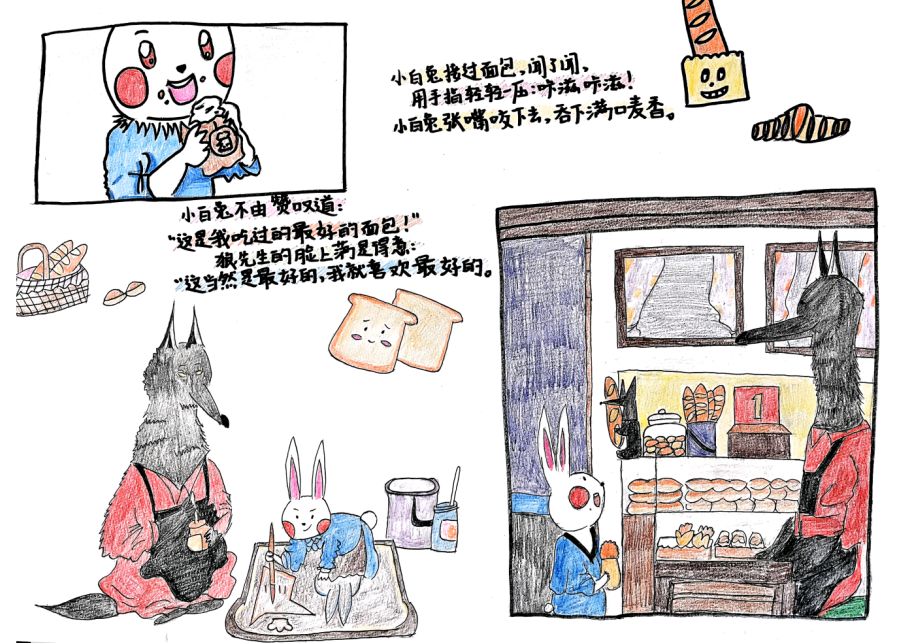 小白兔接过面包，闻了闻，
用手指轻轻一压：咔滋，咔滋！
小白兔张嘴咬下去，吞下满口麦香。
小白兔不由赞叹道：
“这是我吃过的最好的面包！”
狼先生的脸上满是得意：
“这当然是最好的，我就喜欢最好的。
1